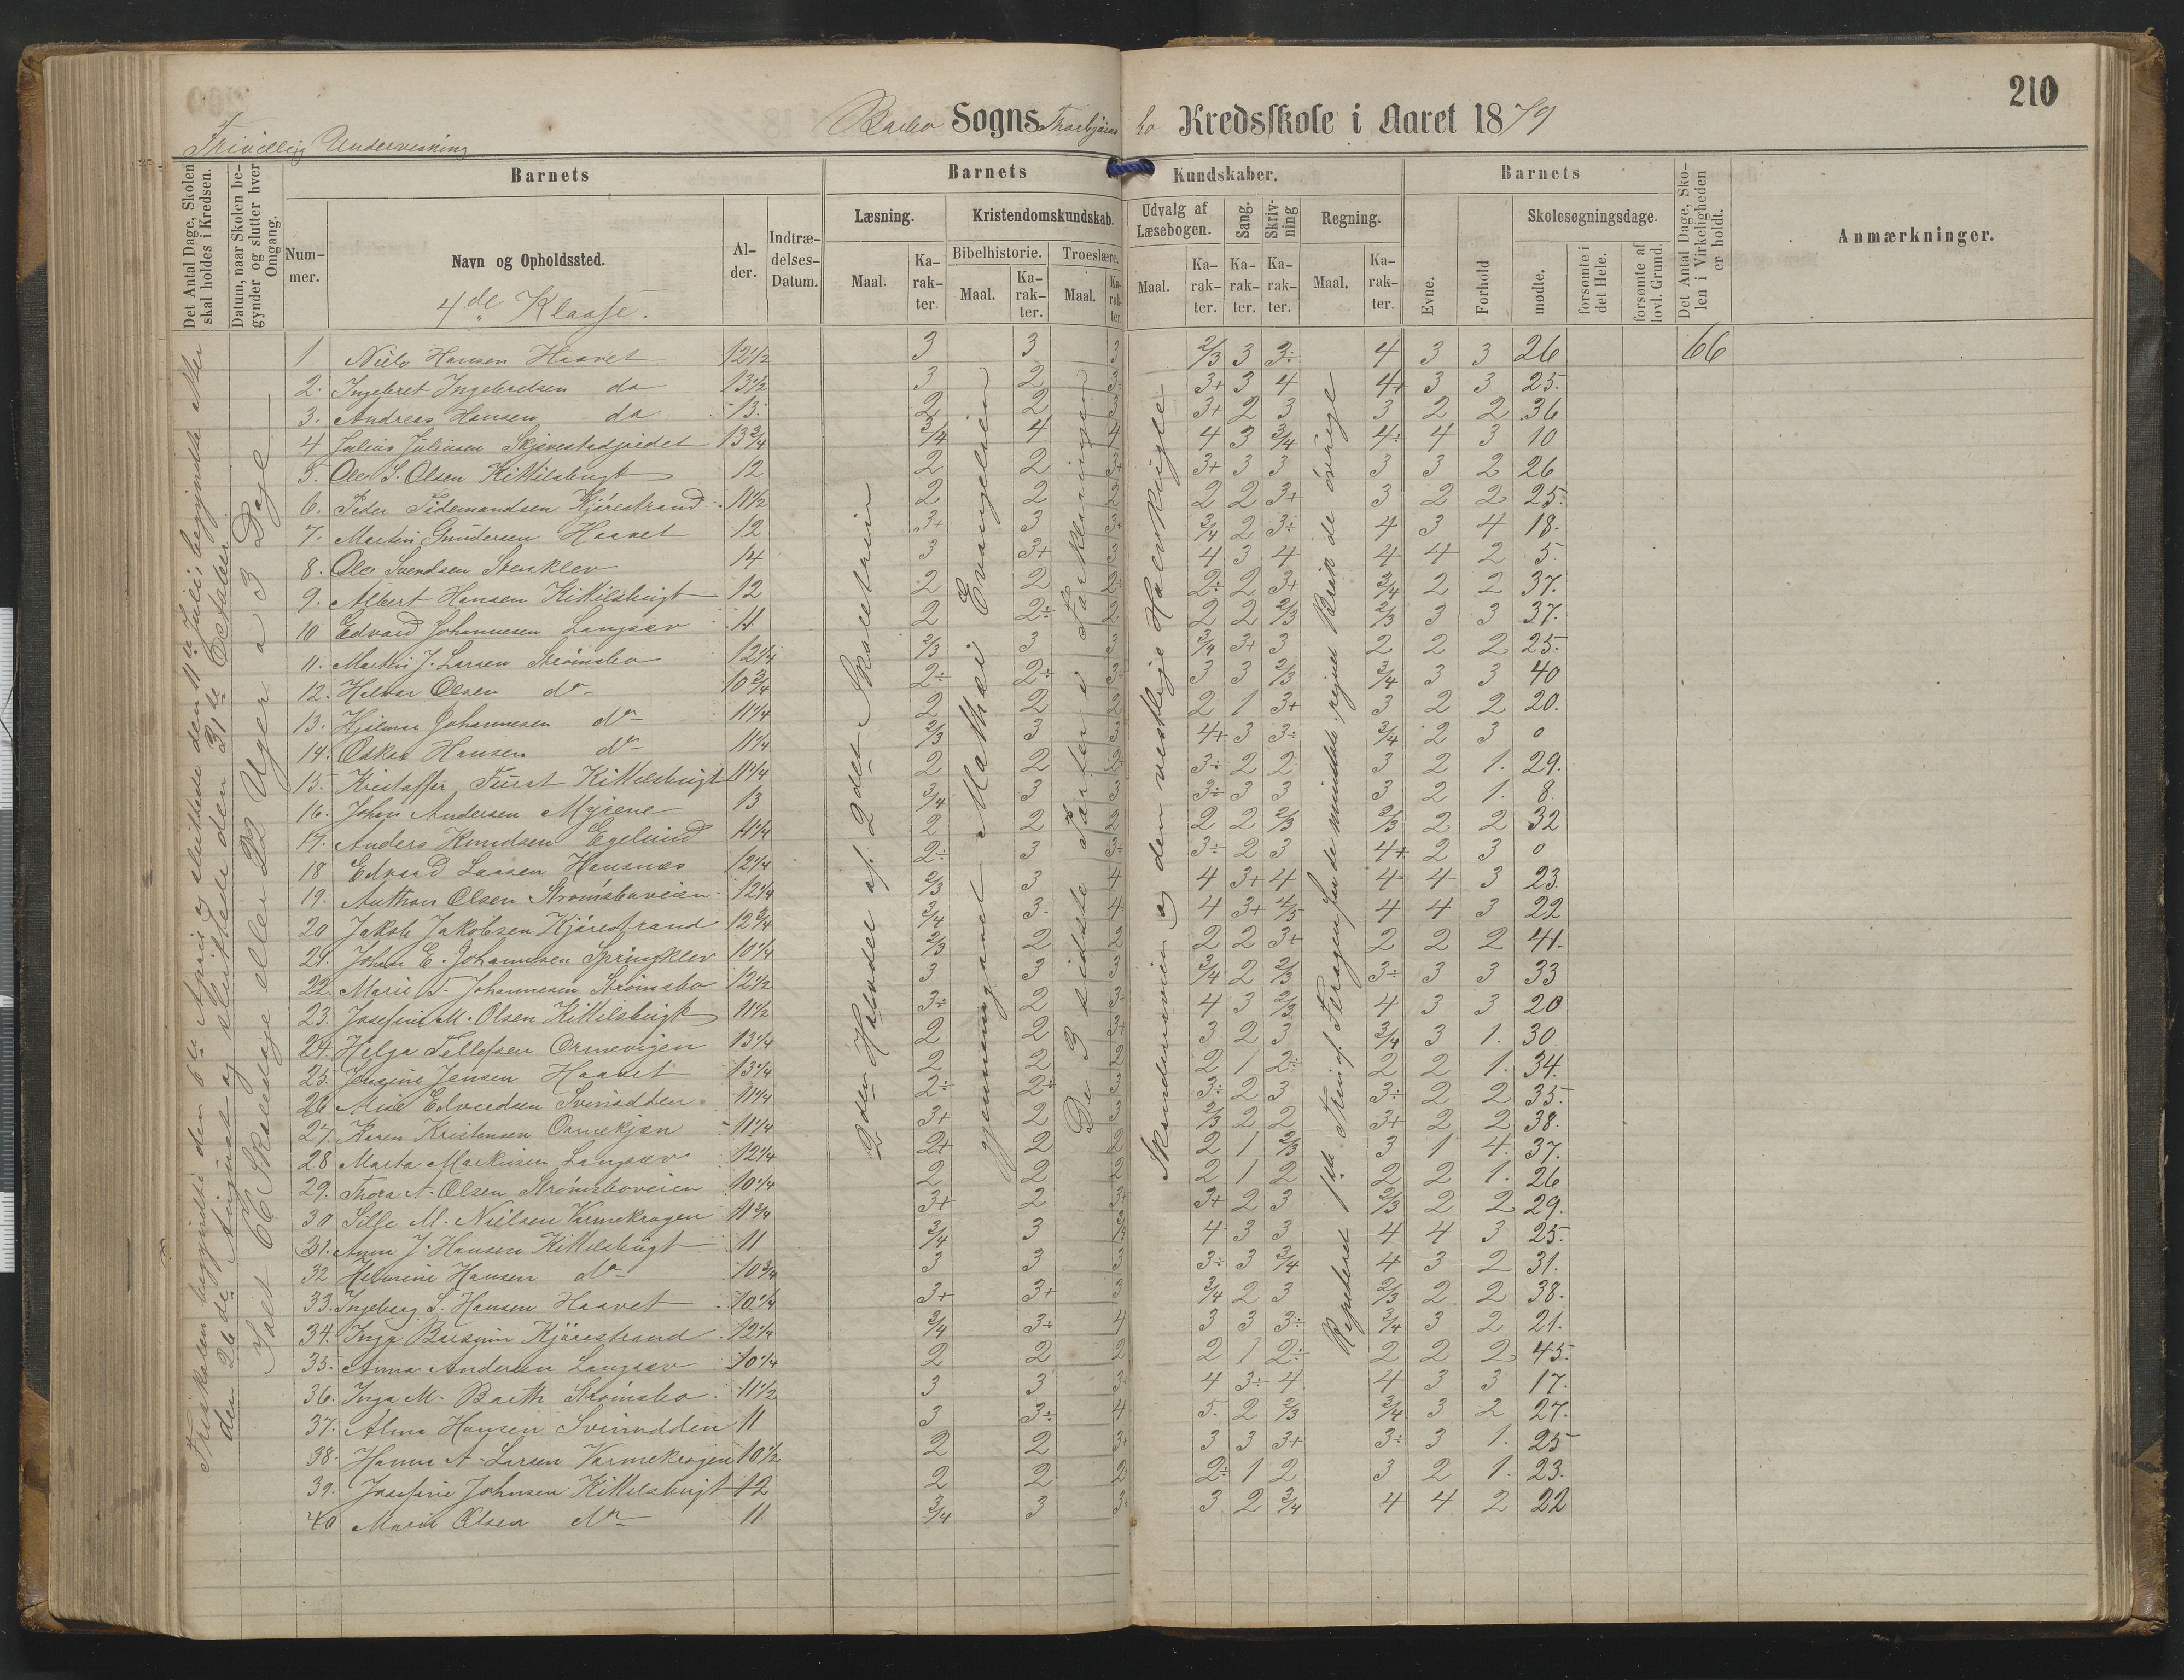 210
Barbo Sogns Thorbjörnsbo Kredsskole i Aaret 1879
Frivillig Undervisning
Det Antal Dage, Skolen skal holdes i Kredsen.
Datum, naar Skolen begynder og slutter hver Omgang.
Barnets
Nummer.
Navn og Opholdssted.
4de Klasse.
Alder.
Indtrædelses-Datum.
Barnets Kundskaber.
Læsning.
Maal.
Karakter.
Kristendomskundskab.
Bibelhistorie.
Maal.
Karakter.
Troeslære.
Maal.
Karakter.
Udvalg af Læsebogen.
Maal.
Karakter.
Sang.
Karakter.
Skrivning
Karakter.
Regning.
Maal.
Karakter.
Barnets
Evne.
Forhold
Skolesøgningsdage.
mødte.
forsømte i det Hele.
forsømte af lovl. Grund.
Det Antal Dage, Skolen i Virkeligheden er holdt.
Anmærkninger.
Friskolen begyndte den 6te April og sluttede den 11te Juli; begyndte
den 26de August og sluttede den 31te Oktober
Ialt 66 Skoledage eller 22 Uger a 3 Dage
2den Halvdel af 2det Skoletrin
gjennemgaaet Mathæi Evangelium
De 3 sidste Parter i Forklaringen
Skandinavien og den vestlige Halvkugle
Repeteret 1ste Trin af Regning for de mindste, regnet Brök de övrige
1 Niels Hansen Haavet 12 1/2 3 3 3 2/3 3 3÷ 4 3 3 26 66
2. Ingebret Ingebretsen do 13 1/2 3 2 3÷ 3+ 3 4 4+ 3 3 25.
3. Andreas Hansen do 13. 2 2 3 3+ 2 3 3 2 2 36
4 Julius Juliusen Skjævestadjordet 13 3/4 3/4 4 4 4 3 3/4 4÷ 4 3 10
5. Ole S. Olsen Kittelsbugt 12 2 2 3+ 3+ 3 3 3 3 2 26
6. Peder Tidemandsen Kjörestrand 11 1/2 2 2 2 2 2 3+ 3 2 2 25.
7. Martin Gundersen Haavet 12 3+ 3 3+ 3/4 2 3÷ 4 3 4 18.
8. Ole Svendsen Stensklev 14 3 3+ 3 4 3 4 4 4 2 5.
9. Albert Hansen Kittelsbugt 12 2 2 2÷ 2÷ 2 3+ 3/4 2 2 37.
10 Edvard Johannesen Langsæv 11 2 2÷ 2 2 2 2/3 2/3 3 3 37.
11. Martin J. Larsen Strömsbo 12 1/4 2/3 3 3 3/4 3+ 3 2 2 2 25.
12. Halvor Olsen do 10 3/4 2÷ 2÷ 3÷ 3 3 2/3 3/4 3 3 40
13. Hjalmar Johannesen do 11 1/4 2 2 2 2 1 3+ 3 2 2 20.
14. Oskar Hansen do 11 1/4 2/3 3 3 4+ 3 3÷ 3/4 2 3 0
15. Kristoffer Fürst Kittelsbugt 11 1/4 2 2 2÷ 3÷ 2 2 3 2 1. 29.
16. Johan Andersen Myrene 13 3/4 3 3 3÷ 3 3 3 2 1. 8.
17. Anders Knudsen Egelund 11 1/4 2 2 2 2 2 2/3 2/3 2 2 32
18 Edvard Larsen Hansnæs 12 1/4 2÷ 3 3÷ 3÷ 2 3 4+ 2 3 0
19. Anthon Olsen Strömsboveien 12 1/4 2/3 3 4 4 3+ 4 4 4 3 23.
20 Jakob Jakobsen Kjörestrand 12 3/4 3/4 3. 4 4 3+ 4/5 4 4 3 22
21. Johan E. Johannesen Springklev 10 1/4 2/3 2 2 2 2 3+ 2 2 2 41.
22. Marie J. Johannesen Strömsbo 12 1/2 3 3 3 3/4 2 2/3 3÷ 3 3 33
23. Josefine M. Olsen Kittelsbugt 11 1/2 3÷ 2 3+ 4 3 2/3 4 3 3 20
24. Helga Tellefsen Ormevigen 13 1/4 2 2 3+ 3 2 3 3/4 3 1. 30.
25. Jensine Jensen Haavet 13 1/4 2 2 2 2 1 2÷ 2 2 1. 34.
26 Mise Edvardsen Svinodden 11 1/4 2÷ 2÷ 3 3÷ 2 3 3÷ 2 2 35.
27. Karen Kristensen Ormekjæn 11 1/4 3+ 2 3 2/3 2 2 3+ 2 2 38.
28 Marta Markusen Langsæv 12 1/4 2+ 2 2 2 1 2/3 3 1 4. 37.
29. Thora A. Olsen Strömsboveien 10 1/4 2 2 2 2 1 2 2 2 1. 26
30 Sille M. Nielsen Varmekrogen 11 3/4 3+ 2 3+ 3+ 2 3 2/3 2 2 29.
31. Anna J. Hansen Kittelsbugt 11 3/4 3 4 3 3 4 4 3 25.
32 Helmine Hansen do 10 3/4 3 3 3 3÷ 3 3/4 4 3 2 31.
33. Ingeborg S. Hansen Haavet 10 1/4 3+ 3+ 3 3/4 2 3 2/3 2 2 38.
34. Inga Kjörestrand 12 1/4 3/4 3+ 4 3 3 3÷ 3/4 3 2 21.
35. Anna Andersen Langsæv 10 1/4 2 2 2 2 1 2÷ 2 2 2 45.
36. Inga M. Barth Strömsbo 11 1/2 3 3 3 4 3÷ 4 4 3 3 17.
37. Alma Hansen Svinodden 11 3 3÷ 4 5. 2 2/3 3/4 3 2 27.
38. Hanna A. Larsen Varmekrogen 10 1/2 2 2 3+ 3 3 3+ 3÷ 3 1. 25
39. Josefine Johnsen Kittelsbugt 12 2 2 2 2÷ 1 2 3 2 1. 23.
40 Marie Olsen do 11 3/4 3 3 3 2 3/4 4 4 2 22